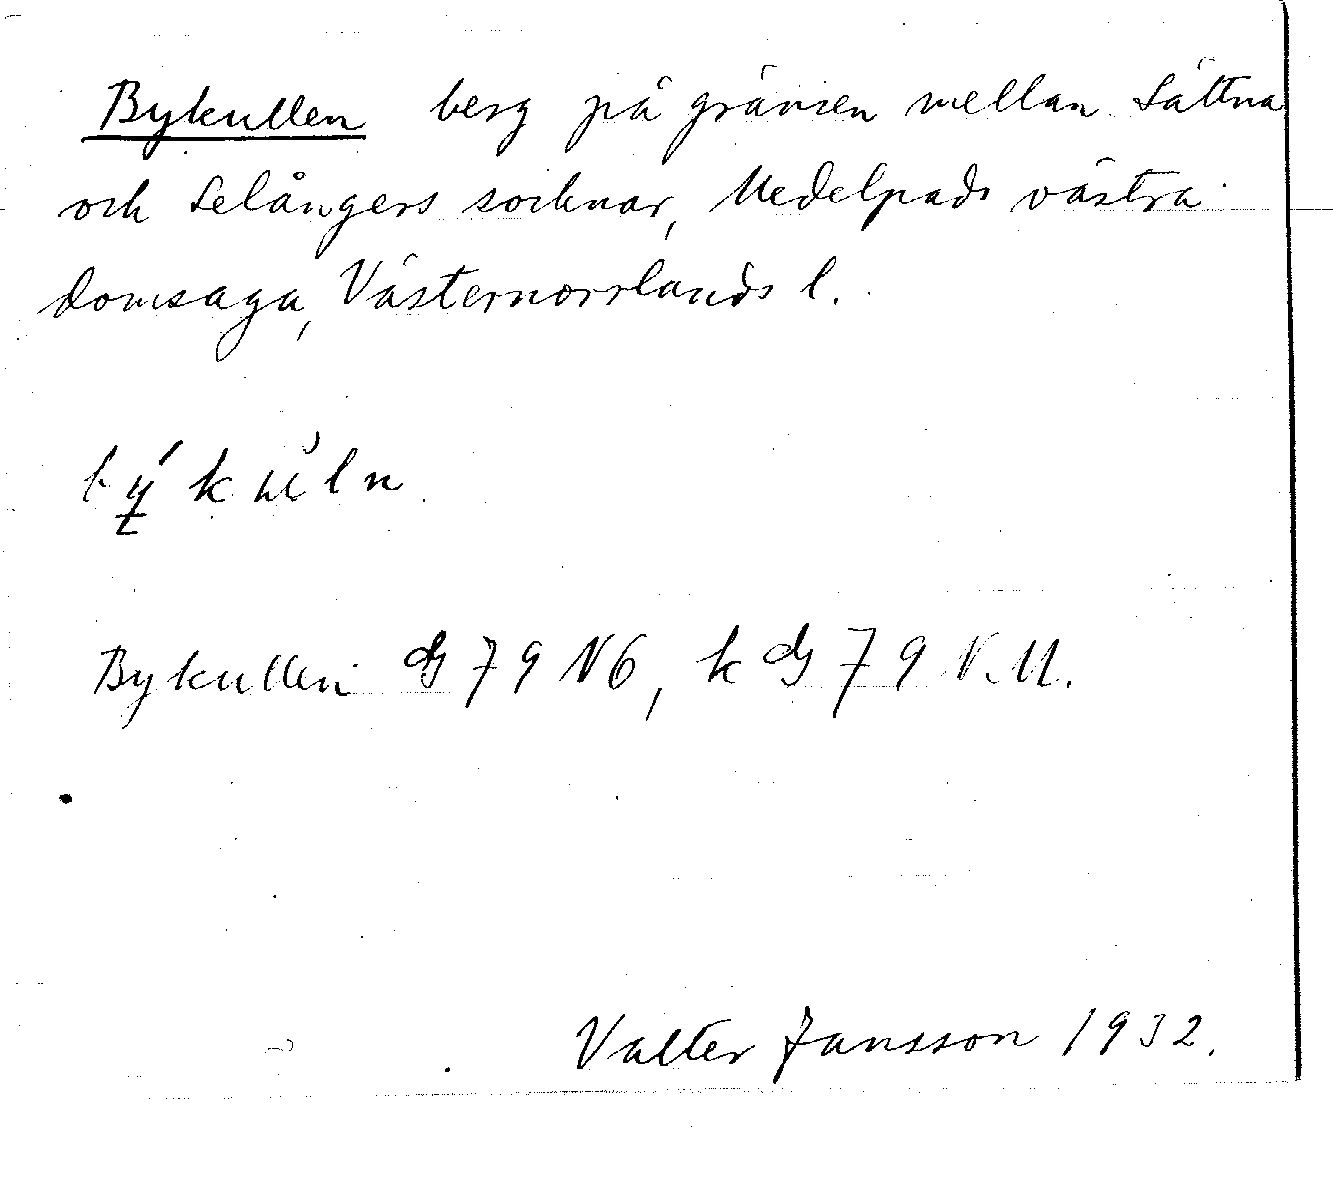 Bykullen berg på gränsen mellan Sättna
och Selångers socknar, Medelpads västra
domsaga, Västernorrlands l.
bý̱kùln
Bykullen dg 79 N6, k dg 79 N.U.
Valter Jansson 1932.